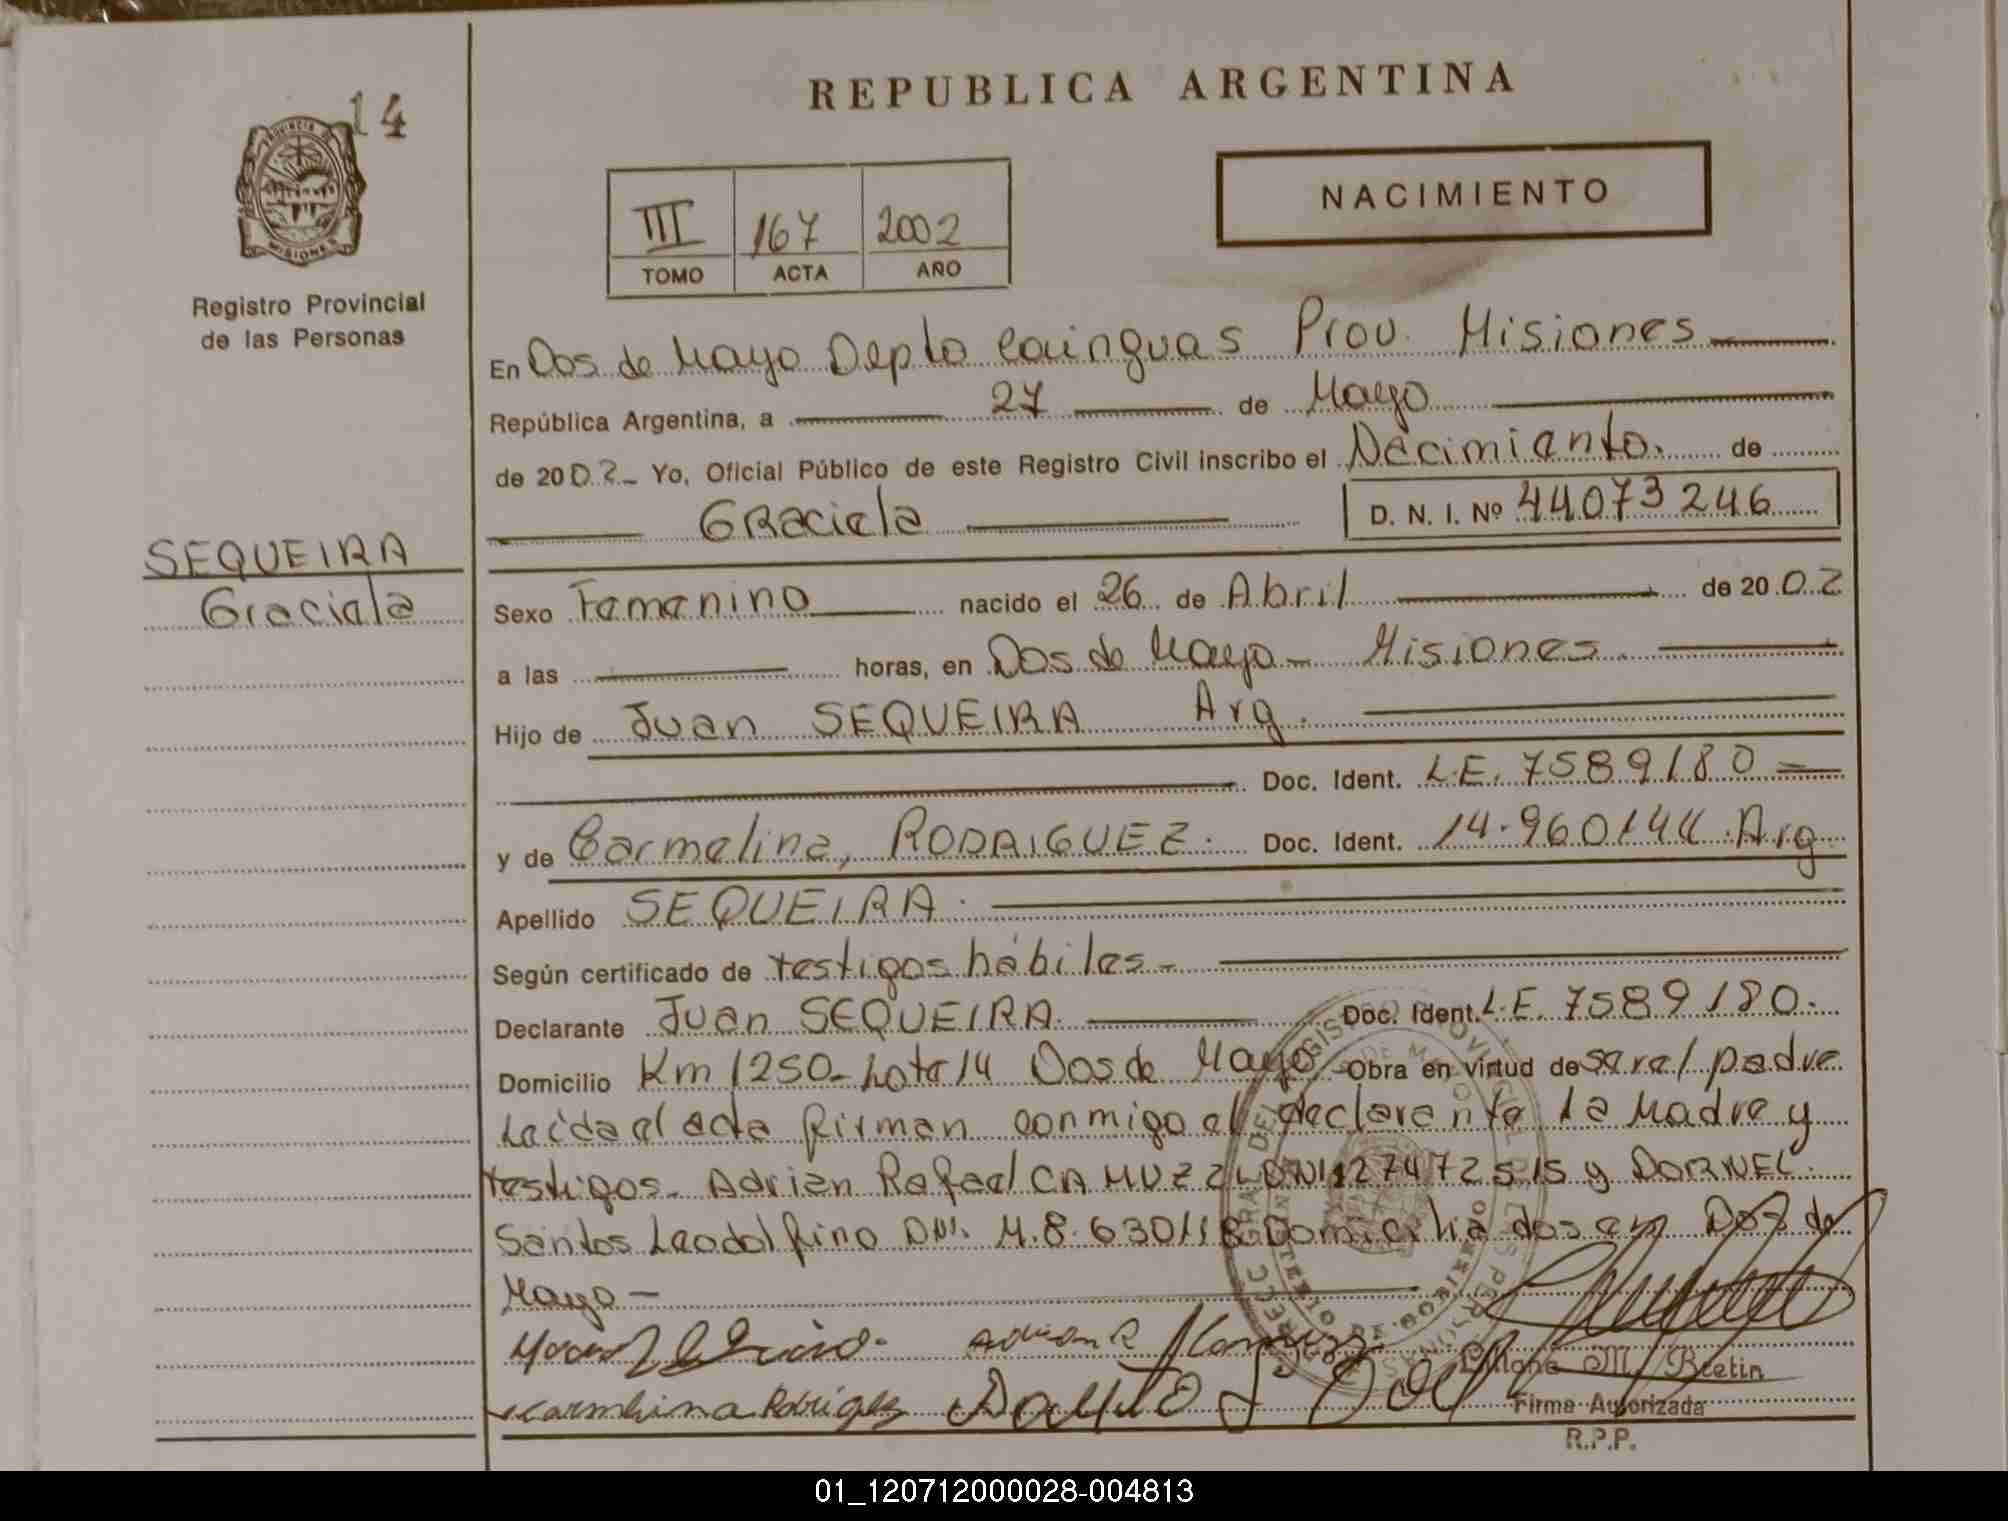 14
PROVINCIA DE
MISIONES
Registro Provincial
de las Personas
SEQUEIRA
Graciela
REPUBLICA ARGENTINA
III 167 2002
TOMO ACTA AÑO
NACIMIENTO
En Dos de Mayo Depto Cainguas Prov. Misiones
República Argentina, a 27 de Mayo
de 2002 Yo, Oficial Público de este Registro Civil inscribo el Nacimiento. de
Graciela D. N. I. Nº 44073246
Sexo Femenino nacido el 26 de Abril de 2002
a las horas, en Dos de Mayo - Misiones
Hijo de Juan SEQUEIRA Arg.
Doc. Ident. L.E. 7589180
y de Carmelina, RODRIGUEZ. Doc. Ident. 14.960144 Arg
Apellido SEQUEIRA.
Según certificado de testigos hábiles-
Declarante Juan SEQUEIRA. Doc. Ident. L.E. 7589180.
Domicilio Km 1250- Lote 14 Dos de Mayo Obra en virtud de ser el padre
Leída el acta firman conmigo el declarante la Madre y
testigos. Adrian Rafael CAMUZZI DNI 27472515 y DORNEL
Santos Leodolfino DNI. M.8.630118 Domiciliados en Dos de
Mayo-
Adrian R
Carmelina Rodriguez
M. Bretin
Firma Autorizada
R.P.P.
01_120712000028-004813